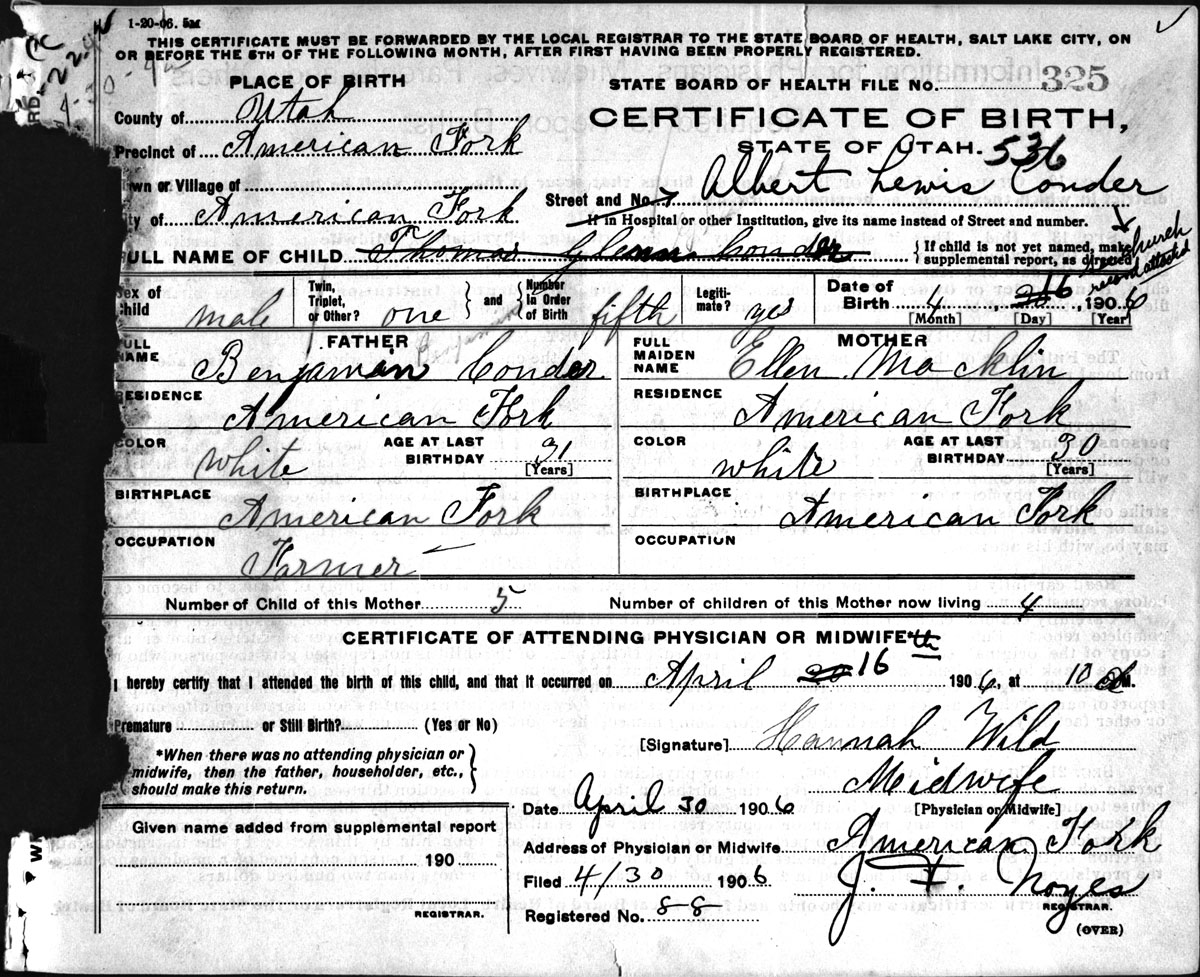 1-20-06. 5M
THIS CERTIFICATE MUST BE FORWARDED BY THE LOCAL REGISTRAR TO THE STATE BOARD OF HEALTH, SALT LAKE CITY, ON
OR BEFORE THE 5TH OF THE FOLLOWING MONTH, AFTER FIRST HAVING BEEN PROPERLY REGISTERED.
PLACE OF BIRTH
STATE BOARD OF HEALTH FILE NO. 325
County of Utah
CERTIFICATE OF BIRTH,
Precinct of American Fork
STATE OF UTAH. 536
Town or Village of
Street and No. Albert Lewis Conder
City of American Fork
If in Hospital or other Institution, give its name instead of Street and number.
FULL NAME OF CHILD Thomas Glenn Conder
{If child is not yet named, make
supplemental report, as directed
church
record attached
Sex of Child male
Twin, Triplet, or Other? one } and { Number in Order of Birth fifth
Legitimate? yes
Date of Birth 4 16 1906
[Month] [Day] [Year]
FATHER
FULL NAME Benjamin Conder
Benjamin
RESIDENCE American Fork
COLOR white AGE AT LAST BIRTHDAY 31
[Years]
BIRTHPLACE American Fork
OCCUPATION Farmer
MOTHER
FULL MAIDEN NAME Ellen Macklin
RESIDENCE American Fork
COLOR white AGE AT LAST BIRTHDAY 30
[Years]
BIRTHPLACE American Fork
OCCUPATION
Number of Child of this Mother 5 Number of children of this Mother now living 4
CERTIFICATE OF ATTENDING PHYSICIAN OR MIDWIFE
I hereby certify that I attended the birth of this child, and that it occurred on April 20 16th 1906, at 10 M.
Premature or Still Birth? (Yes or No)
[Signature] Hannah Wild
*When there was no attending physician or
midwife, then the father, householder, etc.,
should make this return.
Midwife
[Physician or Midwife]
Date April 30 1906
Given name added from supplemental report
190
REGISTRAR.
Address of Physician or Midwife American Fork
Filed 4/30 1906 J. F. Noyes
REGISTRAR.
Registered No. 88
(OVER)